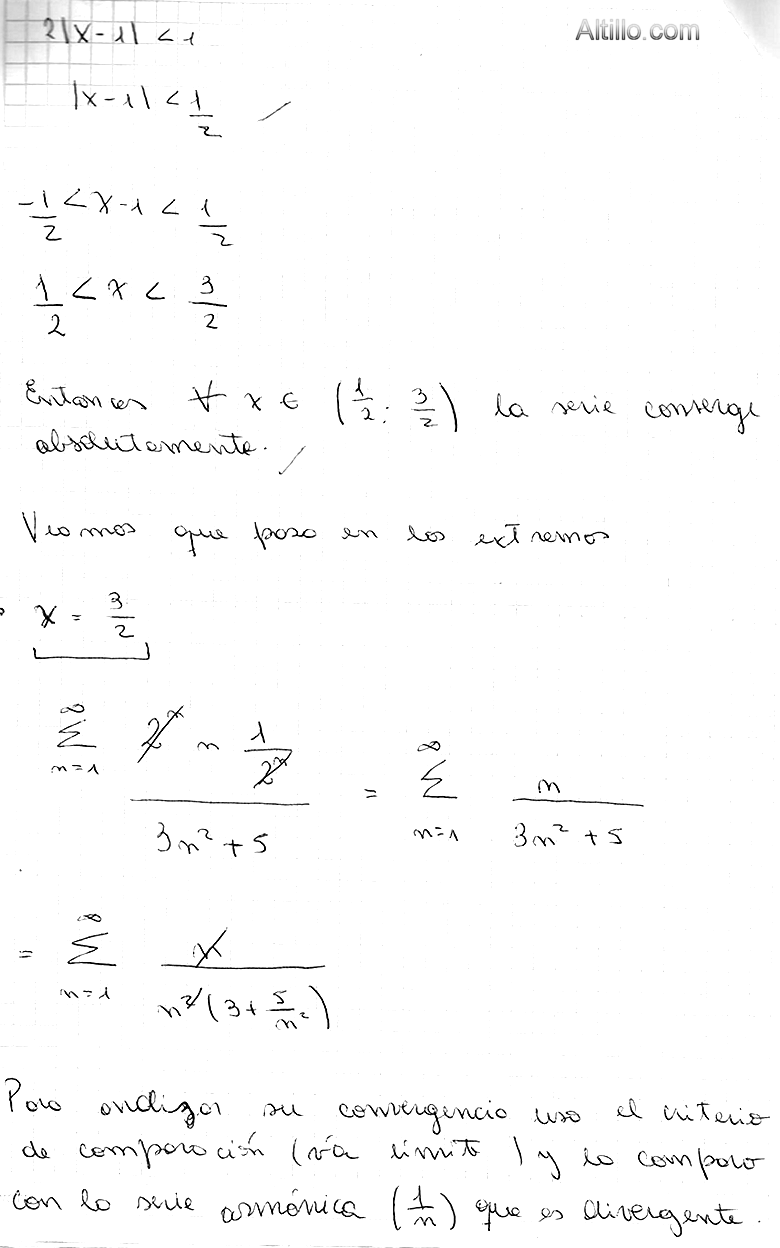 Altillo.com
2|x-1| < 1
|x-1| < 1/2
-1/2 < x-1 < 1/2
1/2 < x < 3/2
Entonces ∀ x ∈ (1/2; 3/2) la serie converge
absolutamente.
Veamos que pasa en los extremos
x = 3/2
∑_{n=1}^{∞} (2^n n 1/2^n)/(3n² + 5) = ∑_{n=1}^{∞} n/(3n² + 5)
= ∑_{n=1}^{∞} n/(n²(3 + 5/n²))
Para analizar su convergencia uso el criterio
de comparación (vía límite) y la comparo
con la serie armónica (1/n) que es divergente.